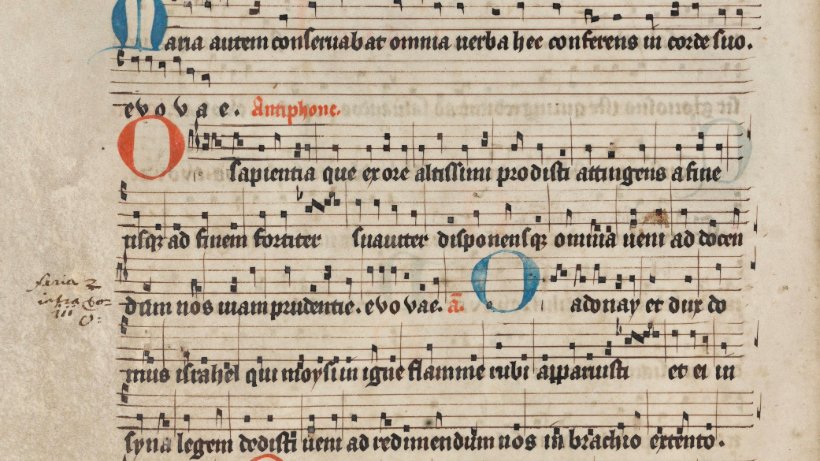 Maria autem conseruabat omnia uerba hec conferens in corde suo.
evovae. Antiphone.
O sapientia que ex ore altissimi prodisti attingens a fine
usque ad finem fortiter suauiter disponensq omnia ueni ad docen
dum nos uiam prudentie. evovae. a.
O adonay et dux do
mus israhel qui moysi in igne flamme rubi apparuisti et ei in
syna legem dedisti ueni ad redimendum nos in brachio extento.
feria 2